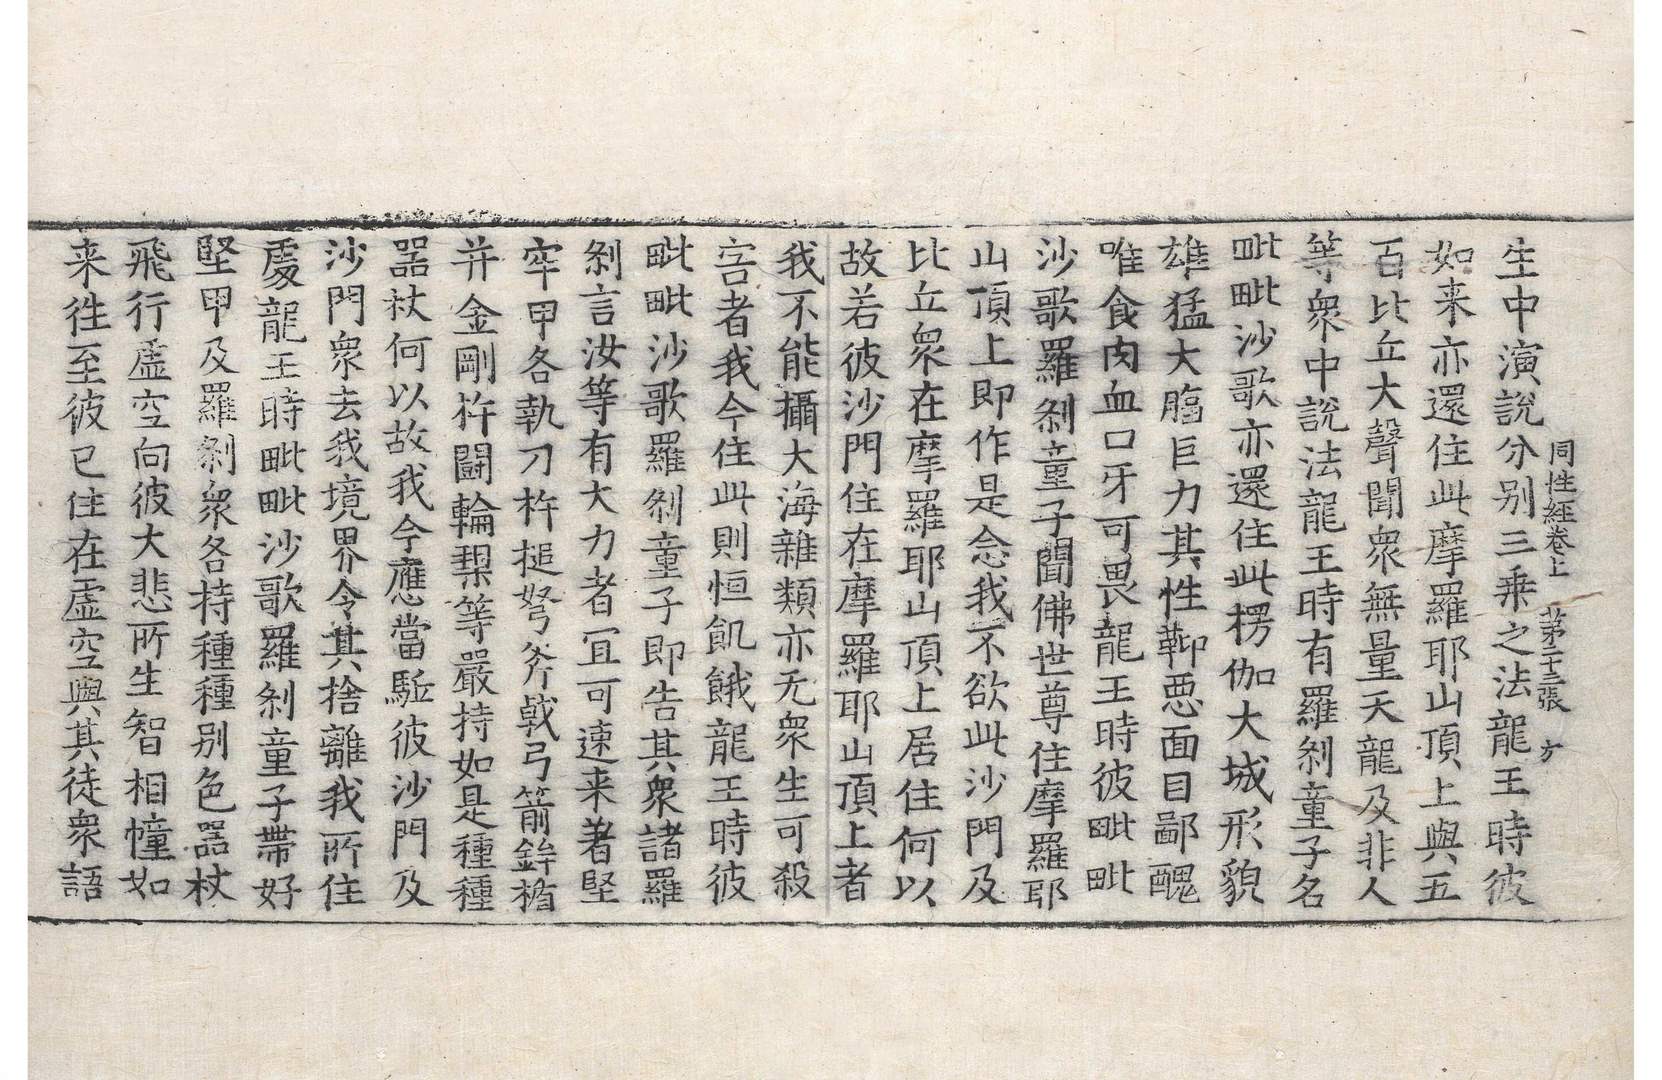 同性經卷上　第二十三張　方
生中演說分别三乗之法龍王時彼
如来亦還住此摩羅耶山頂上與五
百比丘大聲聞衆無量天龍及非人
等衆中說法龍王時有羅刹童子名
毗毗沙歌亦還住此楞伽大城形貌
雄猛大膓巨力其性鄣惡面目鄙醜
唯食肉血口牙可畏龍王時彼毗毗
沙歌羅刹童子聞佛世尊住摩羅耶
山頂上即作是念我不欲此沙門及
比丘衆在摩羅耶山頂上居住何以
故若彼沙門住在摩羅耶山頂上者
我不能攝大海雜類亦无衆生可殺
害者我今住此則恒飢餓龍王時彼
毗毗沙歌羅刹童子即告其衆諸羅
刹言汝等有大力者冝可速来著堅
牢甲各執刀杵槌弩斧戟弓箭鉾楯
并金剛杵鬪輪槊等嚴持如是種種
器杖何以故我今應當駈彼沙門及
沙門衆去我境界令其捨離我所住
處龍王時毗毗沙歌羅刹童子帶好
堅甲及羅刹衆各持種種别色器杖
飛行虛空向彼大悲所生智相幢如
来徃至彼已住在虛空與其徒衆語